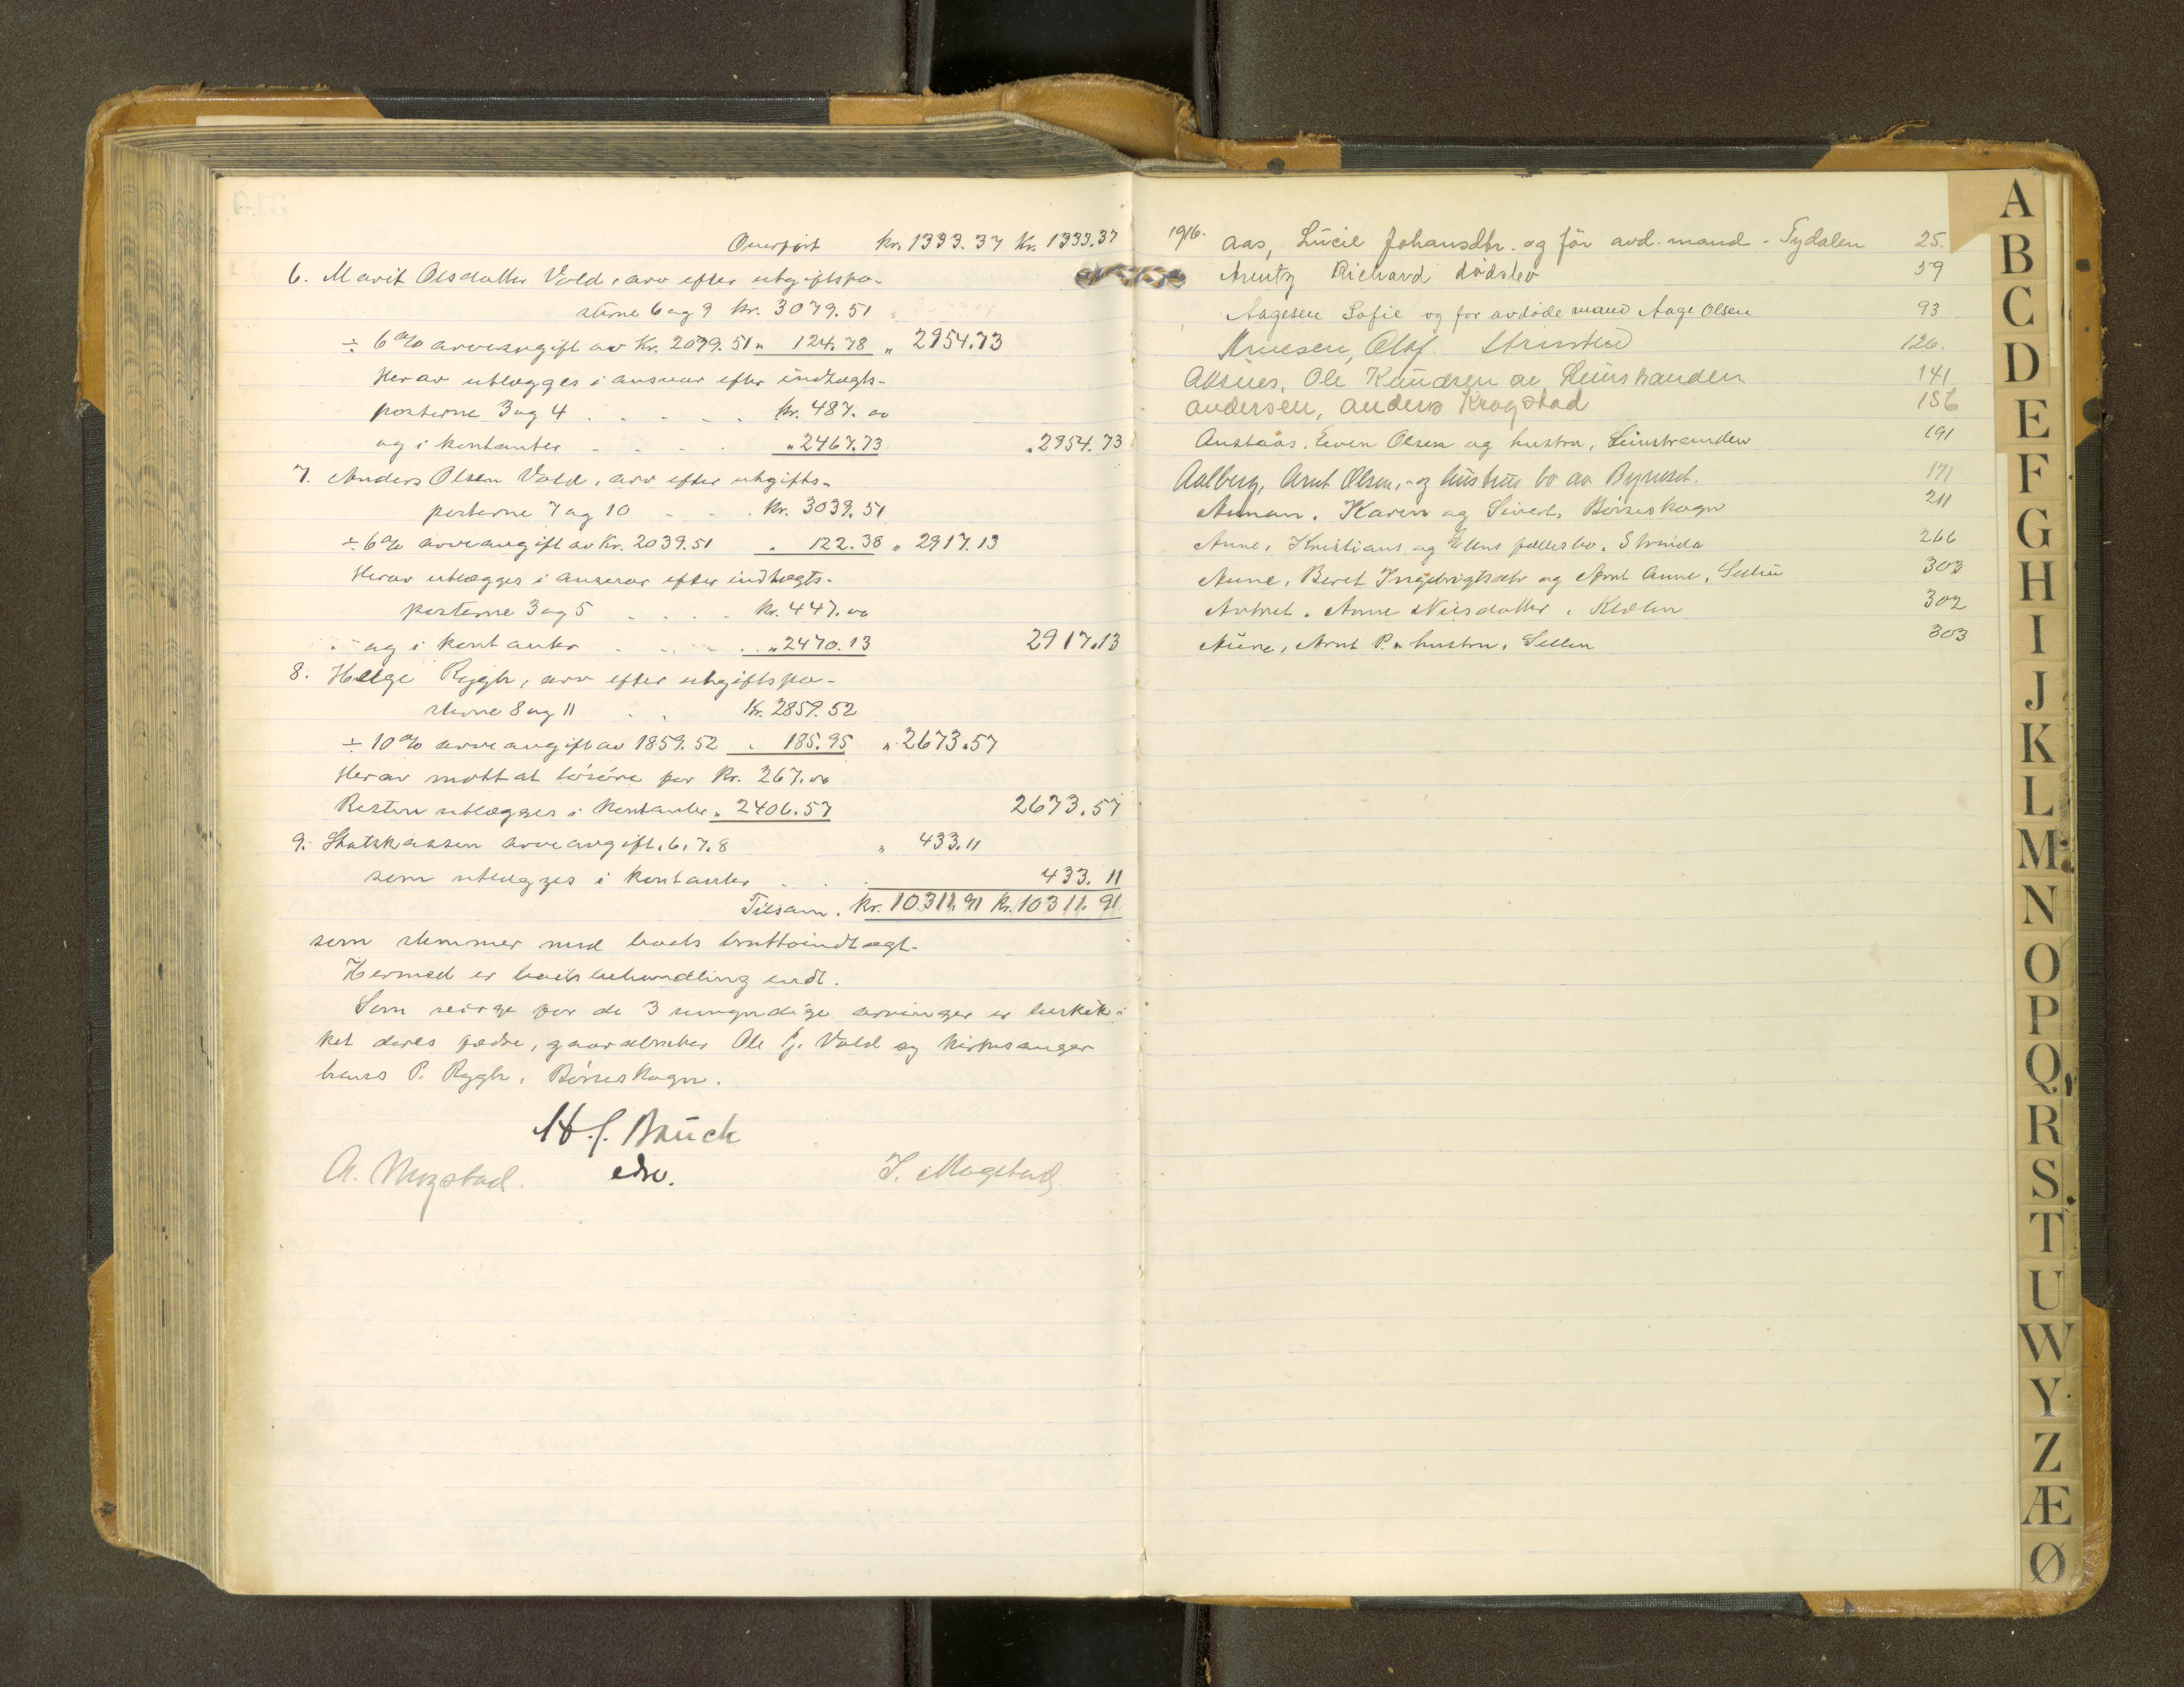 Overført kr. 1333.37 Kr. 1333.37
6. Marit Olsdatter Vold, arv efter utgiftspo-
sterne 6 og 9 kr. 3079.51
÷ 6% arveavgift av Kr. 2079.51 " 124.78 " 2954.73
Herav utlægges i ansvar efter indtægts-
posterne 3 og 4 . . . . . kr. 487.00
og i kontanter . . . . " 2467.73 " 2954.73
7. Anders Olsen Vold, arv efter utgifts-
posterne 7 og 10 . . . kr. 3039.51
÷ 6% arveavgift av Kr. 2039.51 " 122.38 " 2917.13
Herav utlægges i ansvar efter indtægts-
posterne 3 og 5 . . . . kr. 447.00
og i kontanter . . . . " 2470.13 2917.13
8. Helge Rygh, arv efter utgiftspo-
sterne 8 og 11 . . Kr. 2859.52
÷ 10% arveavgift av 1859.52 " 185.95 " 2673.57
Herav mottat løsøre for Kr. 267.00
Resten utlægges i kontanter " 2406.57 2673.57
9. Statskassen arveavgift. 6, 7, 8 " 433.11
som utlægges i kontanter . . . 433.11
Tilsam. Kr. 10311.91 Kr. 10311.91
som stemmer med boets bruttoindtægt.
Hermed er boets behandling endt.
Som verge for de 3 umyndige arvinger er beskik-
ket deres fædre, gaardbruker Ole J. Vold og kirkesanger
Hans P. Rygh, Børseskogn.
H. J. Bauck
edsv.
A. Mogstad. J. Mogstad
1916. Aas, Lucie Johansdtr. og for avd. mand - Tydalen 25.
Arentz Richard dødsbo 59
Aagesen Sofie og for avdøde mand Aage Olsen 93
Olaf. 126.
Aksnes, Ole Knudsen av Leinstranden 141
Andersen, Anders Krogstad 156
Austaas, Even Olsen og hustru, Leinstranden 191
Aalberg, Arnt Olsen, og hustrus bo av Bynesset. 171
Karen og Sivert, Børseskogn 211
Aune, Kristians og Elens fællesbo, Strinda 266
Aune, Beret Ingebrigtsdtr og Arnt Aune, Selbu 303
Anne Nilsdatter, Klæbu 302
Aune, Arnt P. & hustru, Selbu 303
A
B
C
D
E
F
G
H
I
J
K
L
M
N
O
P
Q
R
S
T
U
W
Y
Z
Æ
Ø